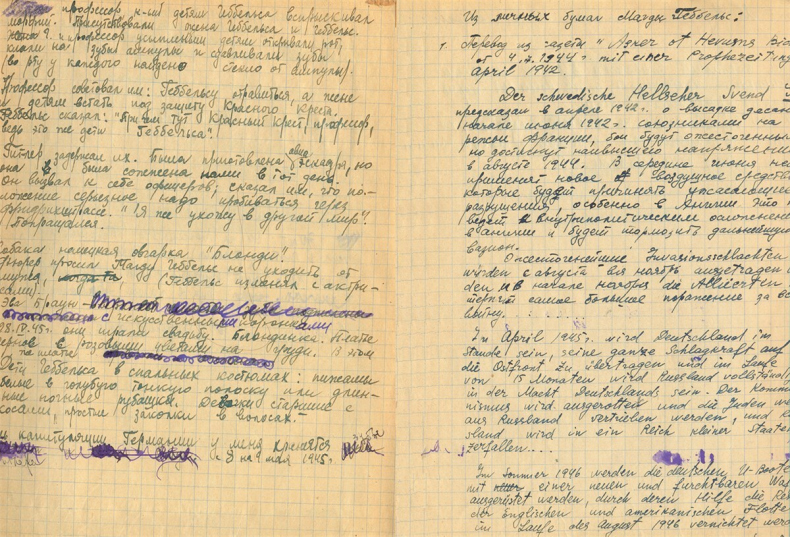 профессор н-ий детям Геббельса вспрыскивал
морфий. Присутствовали жена Геббельса и Геббельс.
профессор усыпленным детям открывали рот,
клали на зубы ампулы и сдавливали зубы
(во рту у каждого найдено стекло от ампулы).
Профессор советовал им: Геббельсу отравиться, а жене
и детям встать под защиту Красного Креста.
Геббельс сказал: "При чем тут Красный Крест, профессор,
ведь это же дети Геббельса".
Гитлер задержал их. Была приготовлена авиаэскадра, но
она была сожжена нами в тот день.
Он вызвал к себе офицеров; сказал им, что по-
ложение серьезное надо пробиваться через
Фридрихштрассе. "Я же ухожу в другой мир".
Попрощался.
Собака немецкая овчарка "Блонди".
Фюрер просил Магду Геббельс не уходить от
мужа, (Геббельс изменял с актри-
сами).
Эва Браун-
с искусственными
28.IV.45г. они играли свадьбу. Блондинка. Платье
черное с розовыми цветами на груди. В этом
платье
Дети Геббельса в спальных костюмах: пижамы
белые в голубую тонкую полоску или длин-
ные ночные рубашки. Девочки старшие с
косами, простые заколки в волосах.
капитуляции Германии у меня хранятся
с 8 на 9 мая 1945г.
Из личных бумаг Магды Геббельс:
1. Перевод из газеты "
от 4. 1944г. mit einer Prophezeitung
April 1942.
Der schwedische Hellseher Svend
предсказал в апреле 1942г. о высадке десанта
начале июня 1942г. союзниками на
Франции, бои будут ожесточенными
но достигнут наивысшего напряжения
в августе 1944. В середине июня
применят новое воздушное средство
которое будет причинять ужасающие
разрушения, особенно в Англии. Это
ведет к внутриполитическим осложнениям
в англии и будет тормозить дальнейшую
вазион.
Ожесточенейшие Invasionsschlachten
würden с августа bis ноябрь ausgetragen
den и в начале ноября die Alliierten
терпят самое большое поражение за всю
войну. . . . . . . .
In April 1945г. wird Deutschland im
stande sein, seine ganze Schlagkraft auf
die Ostfront zu übertragen und im Laufe
von 15 Monaten wird Russland vollständig
in der Macht Deutschlands sein. Der Kommu-
nismus wird ausgerotten und die Juden wer
aus Russland vertrieben werden, und
sland wird in ein Reich kleiner Staaten
zerfallen....
Im Sommer 1946 werden die deutschen U-Boote
mit einer neuen und furchtbaren Waf
ausgerüstet werden, durch deren Hilfe die Re
der Englischen und amerikanischen Flotte
im Laufe des August 1946 vernichtet wer